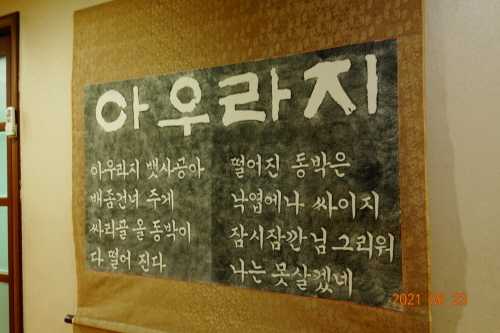 아우라지
아우라지 뱃사공아
배좀건너 주게
싸리골 올동박이
다 떨어 진다
떨어진 동박은
낙엽에나 싸이지
잠시잠깐님그리워
나는 못살겠네
2021 06 23